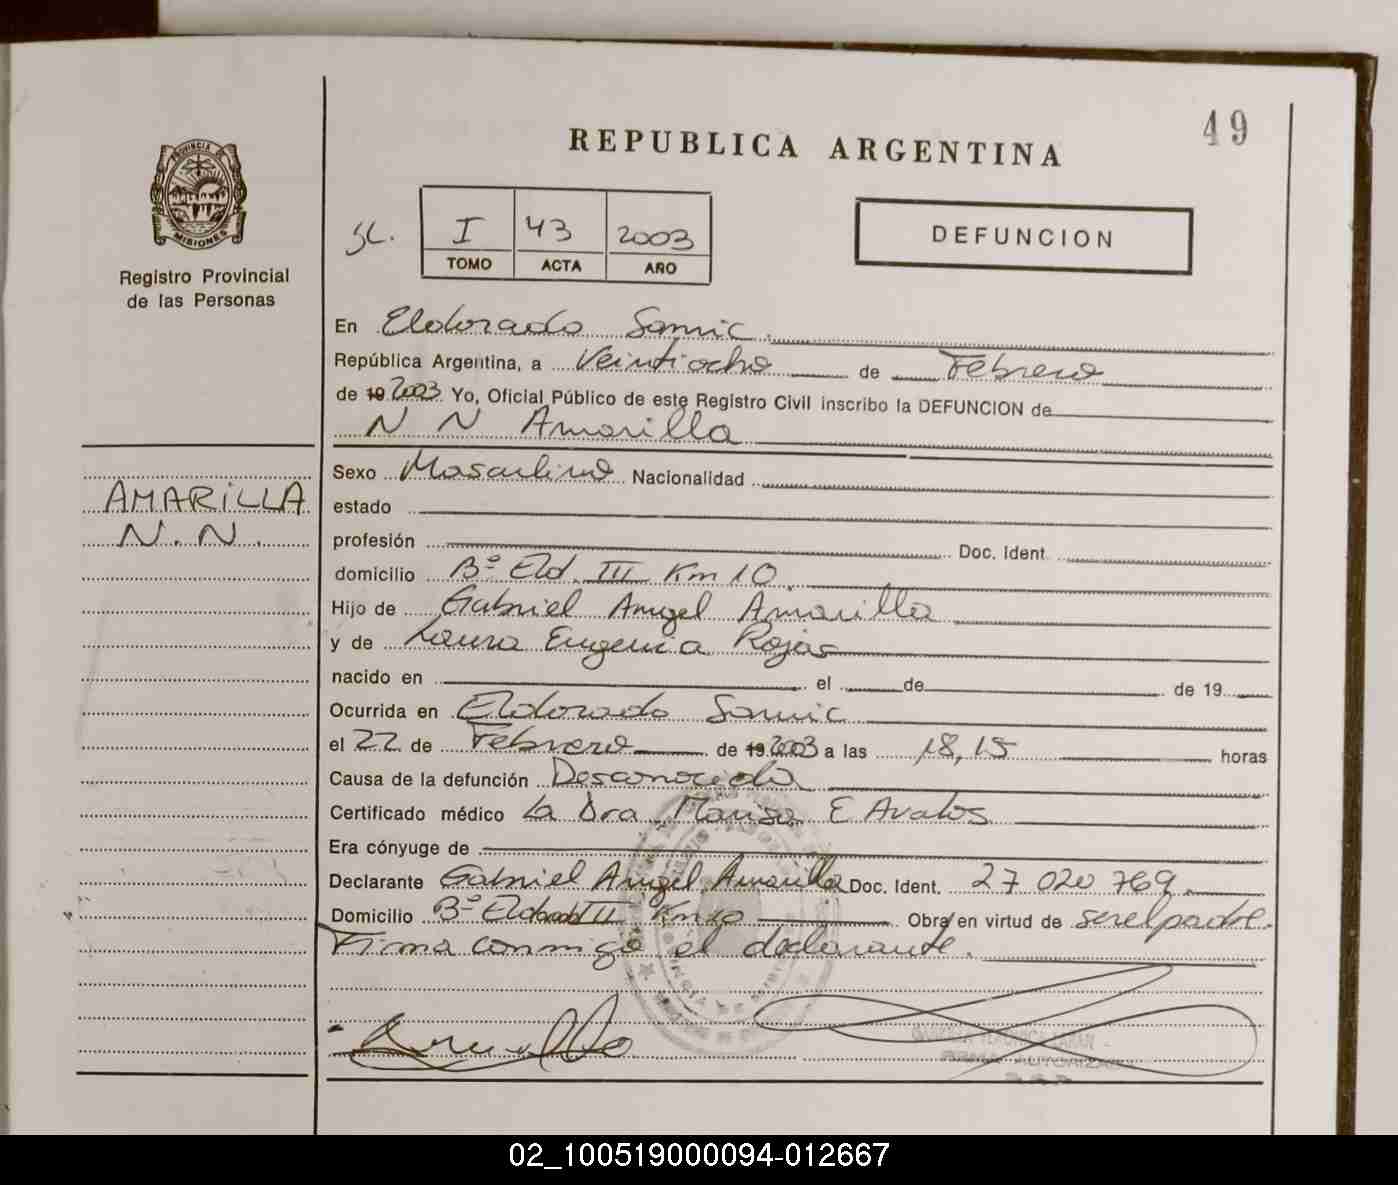 49
REPUBLICA ARGENTINA
PROVINCIA DE
MISIONES
Registro Provincial
de las Personas
I 43 2003
TOMO ACTA AÑO
DEFUNCION
En Eldorado Samic.
República Argentina, a Veintiocho de Febrero
de 19 2003 Yo, Oficial Público de este Registro Civil inscribo la DEFUNCION de
N N Amarilla
AMARILLA
N.N.
Sexo Masculino Nacionalidad
estado
profesión Doc. Ident.
domicilio Bº Eld. III Km 10
Hijo de Gabriel Angel Amarilla
y de Laura Eugenia Rojas
nacido en el de de 19
Ocurrida en Eldorado Samic
el 22 de Febrero de 19 2003 a las 18,15 horas
Causa de la defunción Desconocida
Certificado médico La Dra. Marisa E Avalos
Era cónyuge de
Declarante Gabriel Angel Amarilla Doc. Ident. 27 020 769.
Domicilio Bº Eldorado III Km 10 Obra en virtud de ser el padre.
Firma conmigo el declarante.
FIRMA AUTORIZADA
02_100519000094-012667